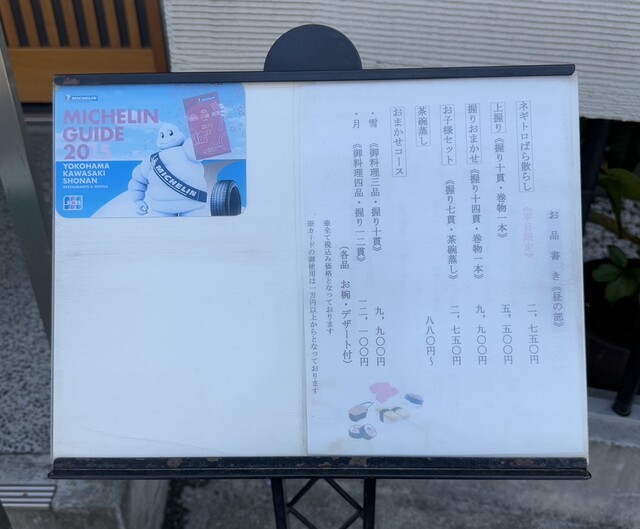 MICHELIN
GUIDE
2015
YOKOHAMA
KAWASAKI
SHONAN
RESTAURANTS & HOTELS
MICHELIN
お品書き《昼の部》
ネギトロばら散らし
二、七五〇円
上握り《握り十貫・巻物一本》
五、五〇〇円
握りおまかせ《握り十四貫・巻物一本》
九、九〇〇円
お子様セット《握り七貫・茶碗蒸し》
二、七五〇円
茶碗蒸し
八八〇円～
おまかせコース
・雪《御料理三品・握り十貫》
九、九〇〇円
・月《御料理四品・握り一二貫》
一二、一〇〇円
(各品 お椀・デザート付)
※全て税込み価格となっております
※カードの御使用は一万円以上からとなっております